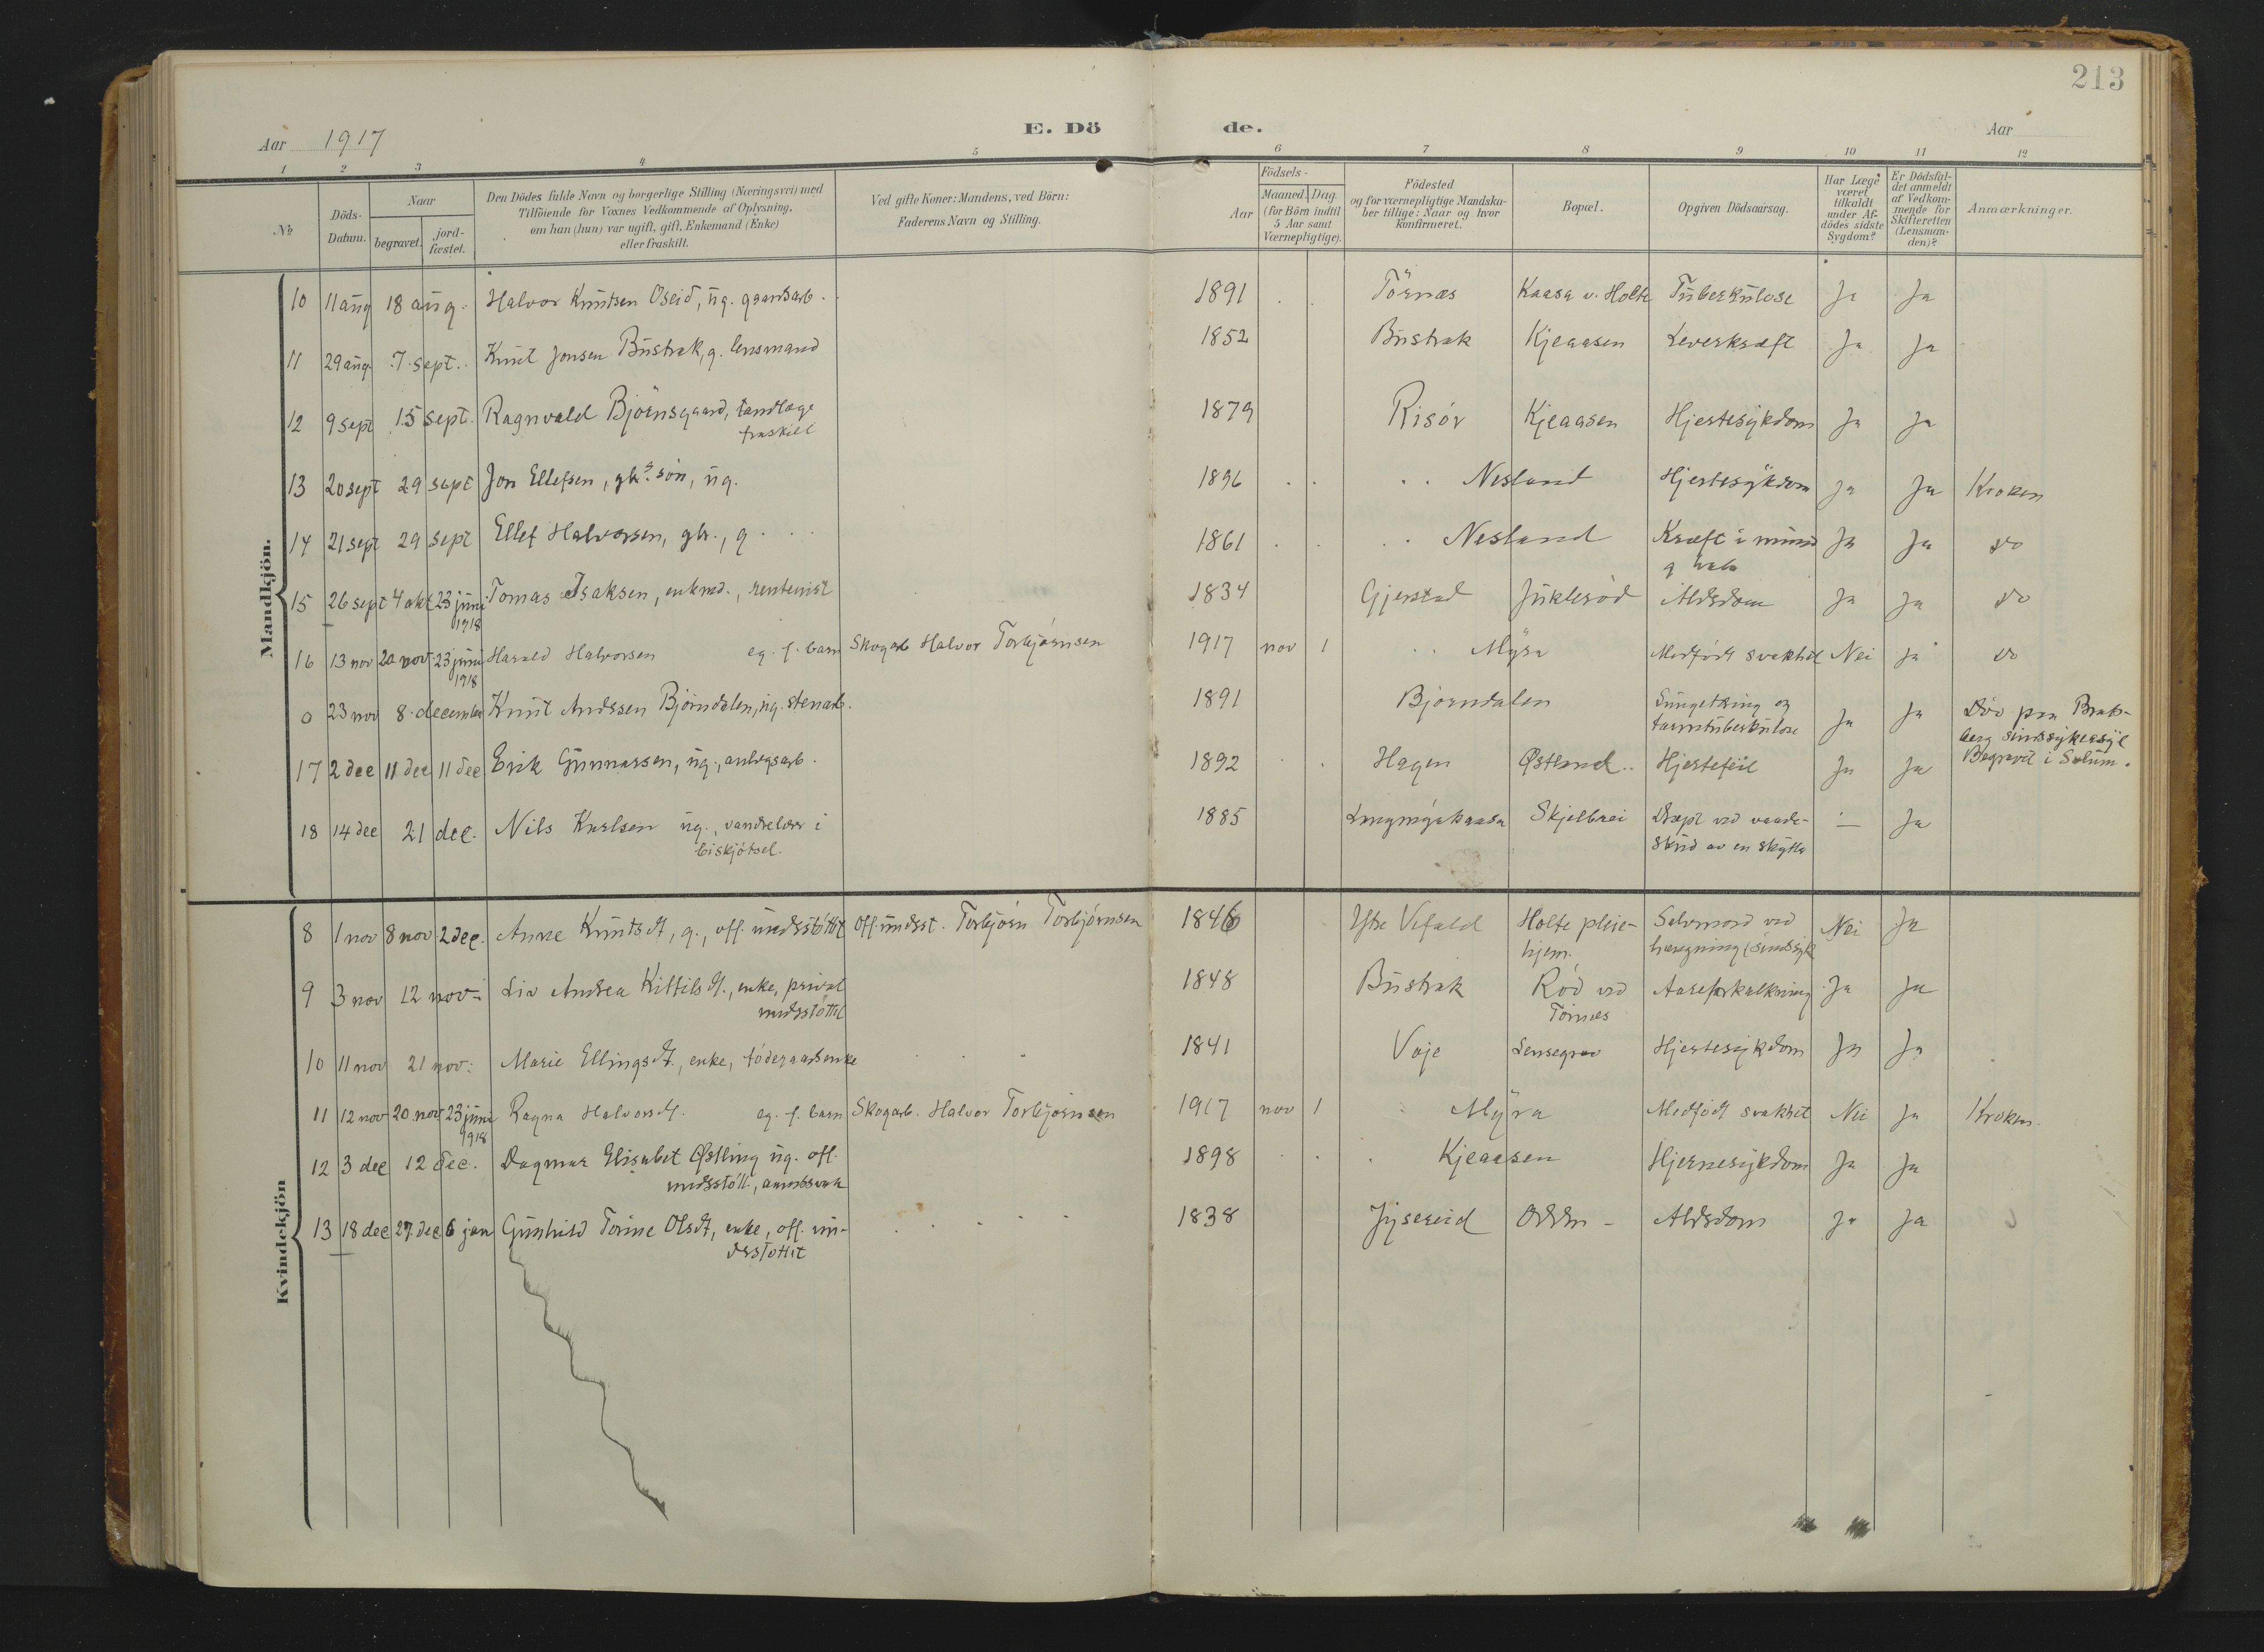 213
Aar 1917
E. Dö
de.
Aar
1 2 3 4 5 6 7 8 9 10 11 12
№
Döds-
Datum.
Naar
begravet.
jord-
fæstet.
Den Dödes fulde Navn og borgerlige Stilling (Næringsvei) med
Tilföiende for Voxnes Vedkommende af Oplysning,
om han (hun) var ugift, gift, Enkemand (Enke)
eller fraskilt.
Ved gifte Koner: Mandens, ved Börn:
Faderens Navn og Stilling.
Aar
Födsels-
Maaned. Dag.
(for Börn indtil
5 Aar samt
Værnepligtige).
Födested
og for værnepligtige Mandska-
ber tillige: Naar og hvor
konfirmeret.
Bopæl.
Opgiven Dödsaarsag.
Har Læge
været
tilkaldt
under Af-
dödes sidste
Sygdom?
Er Dödsfal-
det anmeldt
af Vedkom-
mende for
Skifteretten
(Lensman-
den)?
Anmærkninger.
Mandkjön.
10 11 aug 18 aug. Halvor Knutsen Oseid, ug. gaardsarb. 1891 Törnæs Kaasa v. Holte Tuberkulose Ja Ja
11 29 aug. 7. sept. Knut Jonsen Bustrak, g. lensmand 1852 Bustrak Kjeaasen Leverkræft Ja Ja
12 9 sept 15 sept. Ragnvald Björnsgaard, tandlæge
fraskilt 1879 Risör Kjeaasen Hjertesykdom Ja Ja
13 20 sept 29 sept Jon Ellefsen, gbr. søn, ug. 1896 Nesland Hjertesykdom Ja Ja Kroken
14 21 sept 29 sept Ellef Halvorsen, gbr., g. 1861 Nesland Kræft i mund
g hals Ja Ja do
15 26 sept 4 okt 23 juni
1918 Tomas Isaksen, enkmd., rentenist 1834 Gjerstad Juklerød Aldsdom Ja Ja do
16 13 nov 20 nov 23 juni
1918 Harald Halvorsen eg. f. barn Skogarb Halvor Torbjørnsen 1917 nov 1 Myra Medfødt svakhet Nei Ja do
0 23 nov 8. december Knut Andssen Bjørndalen, ug. stenarb. 1891 Bjørndalen Lungetæring og
tarmtuberkulose Ja Ja Död paa Brats-
berg sindssykeasyl
Begravd i Solum.
17 2 dec 11 dec 11 dec Erik Gunnarsen, ug., anlegsarb. 1892 Hagen Østland Hjertefeil Ja Ja
18 14 dec 21 dec. Nils Karlsen ug., vandrelærer i
biskjøtsel. 1885 Skjelbrei Dræpt ved vaade-
skud av en skytter — Ja
Kvindekjön
8 1 nov 8 nov 2 dec. Anne Knutsdt, g., off. understøttet Off. underst. Torbjørn Torbjørnsen 1846 Ytre Vefald Holte pleie-
hjem. Selvmord ved
hængning (sindssyk Nei Ja
9 3 nov 12 nov. Liv Andrea Kittilsdt., enke, privat
understøttet 1848 Bustrak Rød ved
Tørnæs Aareforkalkning Ja Ja
10 11 nov 21 nov. Marie Ellingsdt., enke,føderaadsenke 1841 Voje Lensegrav Hjertesykdom Ja Ja
11 12 nov 20. nov 23 juni
1918 Ragna Halvorsdt. eg. f. barn Skogarb. Halvor Torbjørnsen 1917 nov 1 Myra Medfødt svakhet Nei Ja Kroken
12 3 dec 12 dec. Dagmar Elisabet Østling ug. off.
understøtt., aandssvak 1898 Kjeaasen Hjernesykdom Ja Ja
13 18 dec 27. dec 6 jan Gunhild Torine Olsdt, enke, off. un-
derstøttet 1838 Jysereid Odden Aldsdom Ja Ja